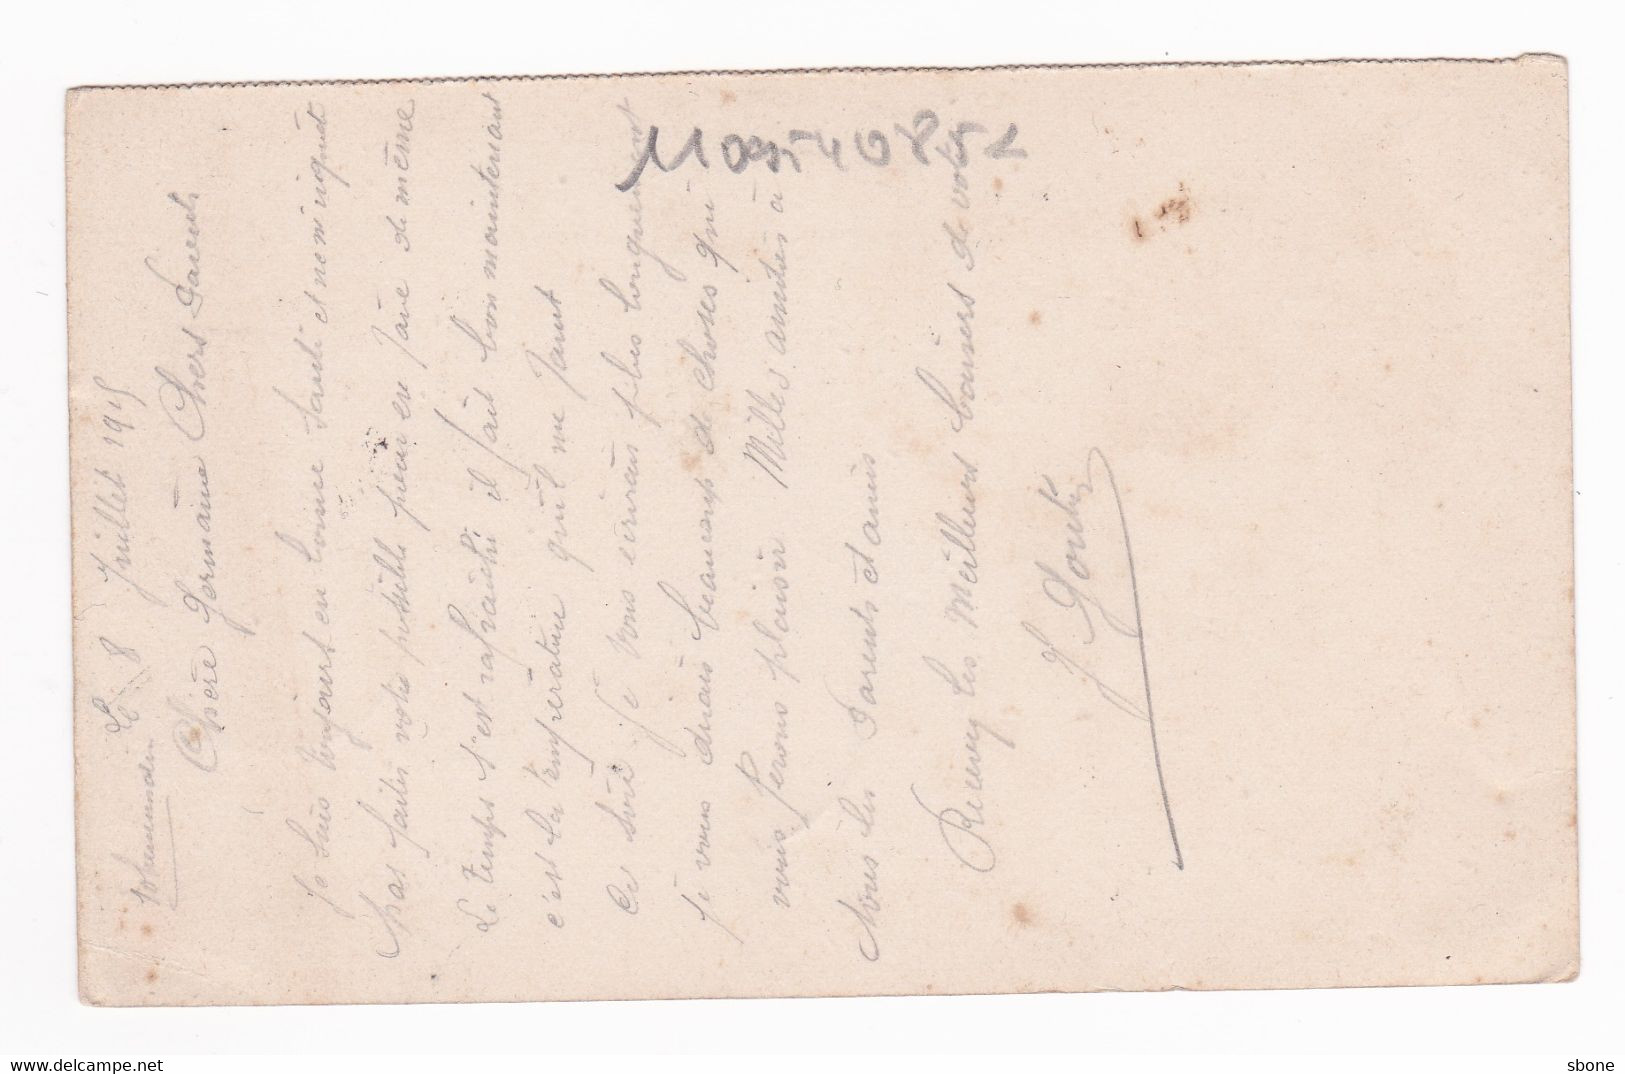 Le 8 Juillet 1915
Chère Germaine Chers Parents
Je suis toujours en bonne santé et ne m'inquiet
pas faites votre possible pour en faire de même
Le temps s'est rafraichi il fait bon maintenant
c'est la température qu'il me faut
Ce soir Je vous écrirais plus longuement
je vous dirais beaucoup de choses qui
vous ferons plaisir Milles amitiés à
tous les Parents et amis
Recevez les Meilleurs baisers de votre
J
sbone
www.delcampe.net